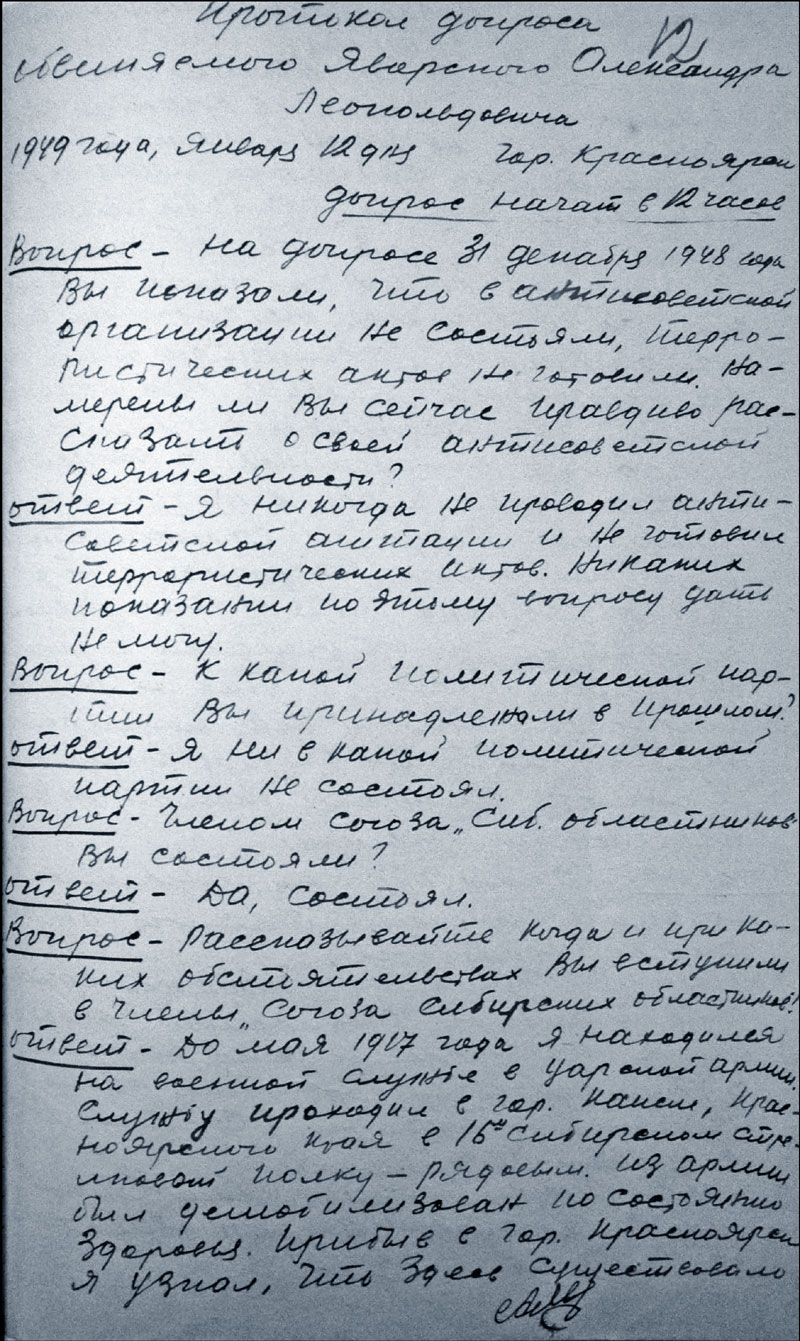 Протокол допроса
12
обвиняемого Яворского Александра
Леопольдовича
1949 года, января 12 дня гор. Красноярск
допрос начат в 12 часов
Вопрос – На допросе 31 декабря 1948 года
Вы показали, что в антисоветской
организации не состояли, терро-
ристических актов не готовили. На-
мерены ли Вы сейчас правдиво рас-
сказать о своей антисоветской
деятельности?
ответ – Я никогда не проводил анти-
советской агитации и не готовил
террористических актов. Никаких
показаний по этому вопросу дать
не могу.
Вопрос – К какой политической пар-
тии Вы принадлежали в прошлом?
ответ – Я ни в какой политической
партии не состоял.
Вопрос – Членом союза „Сиб. областников"
Вы состояли?
ответ – Да, состоял.
Вопрос – Рассказывайте когда и при ка-
ких обстоятельствах Вы вступили
в члены „Союза Сибирских областников"?
ответ – До мая 1917 года я находился
на военной службе в царской армии.
Службу проходил в гор. Канске, Крас-
ноярского края в 16м Сибирском стре-
лковом полку – рядовым. Из армии
был демобилизован по состоянию
здоровья. Прибыв в гор. Красноярск
я узнал, что здесь существовало